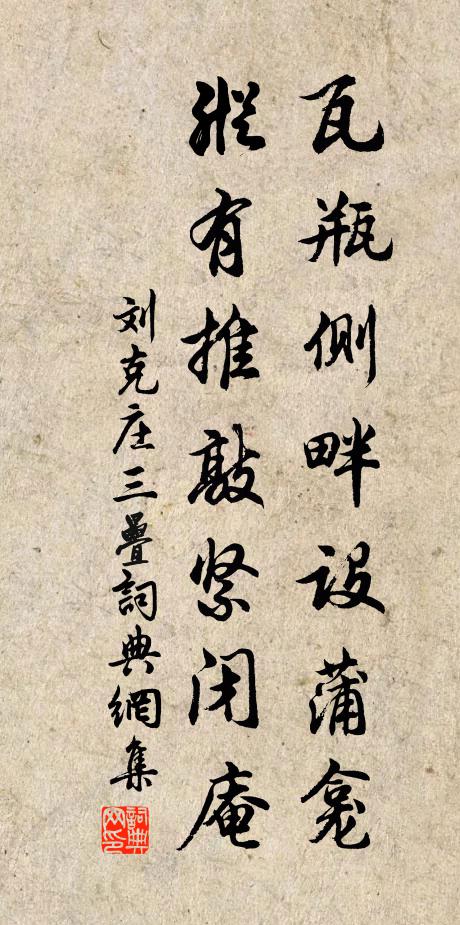 瓦瓶側畔设蒲龛
縱有推敲紧闭庵
刘克庄三疊詞典網集
詞典网印